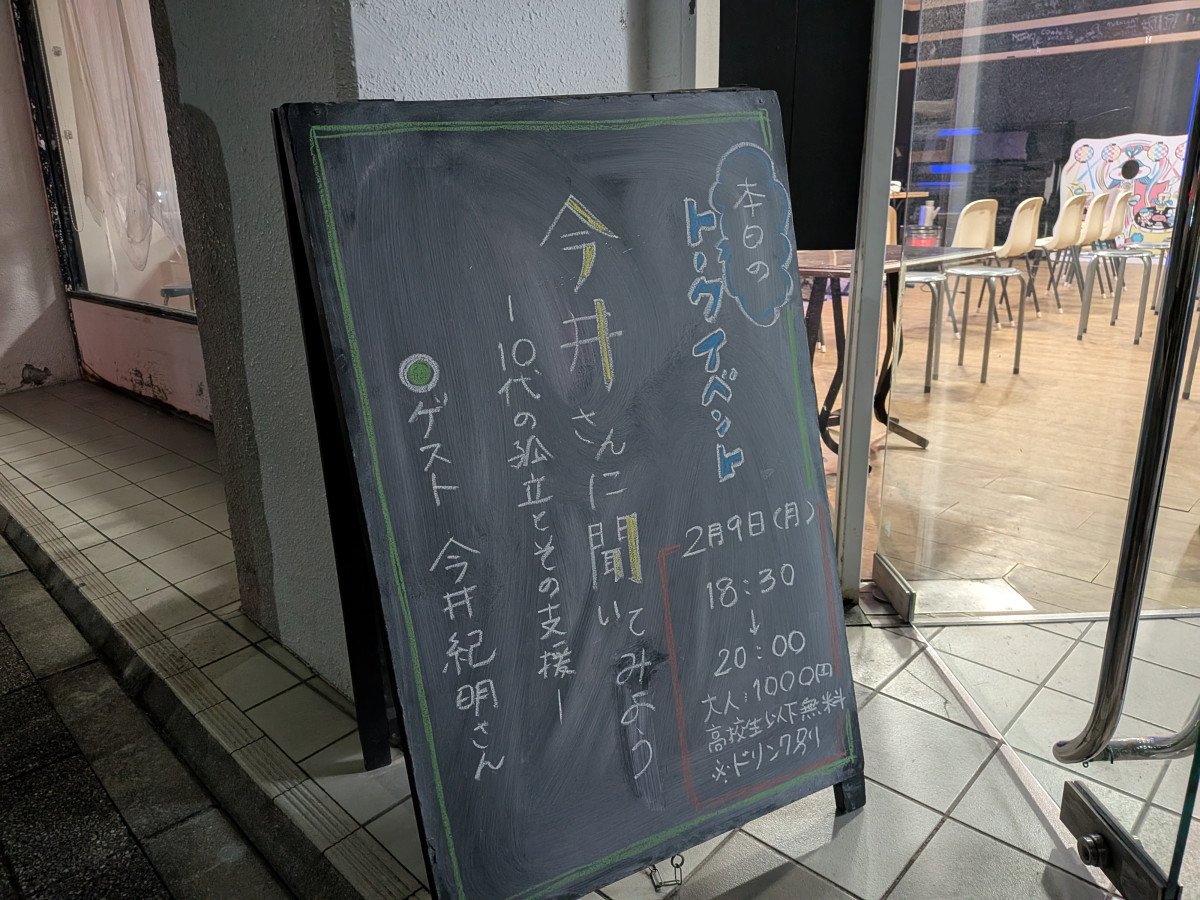 本日の
トークイベント
今井さんに聞いてみよう
ー10代の孤立とその支援ー
ゲスト 今井紀明さん
2月9日(月)
18:30
↓
20:00
大人:1000円
高校生以下無料
※ドリンク別